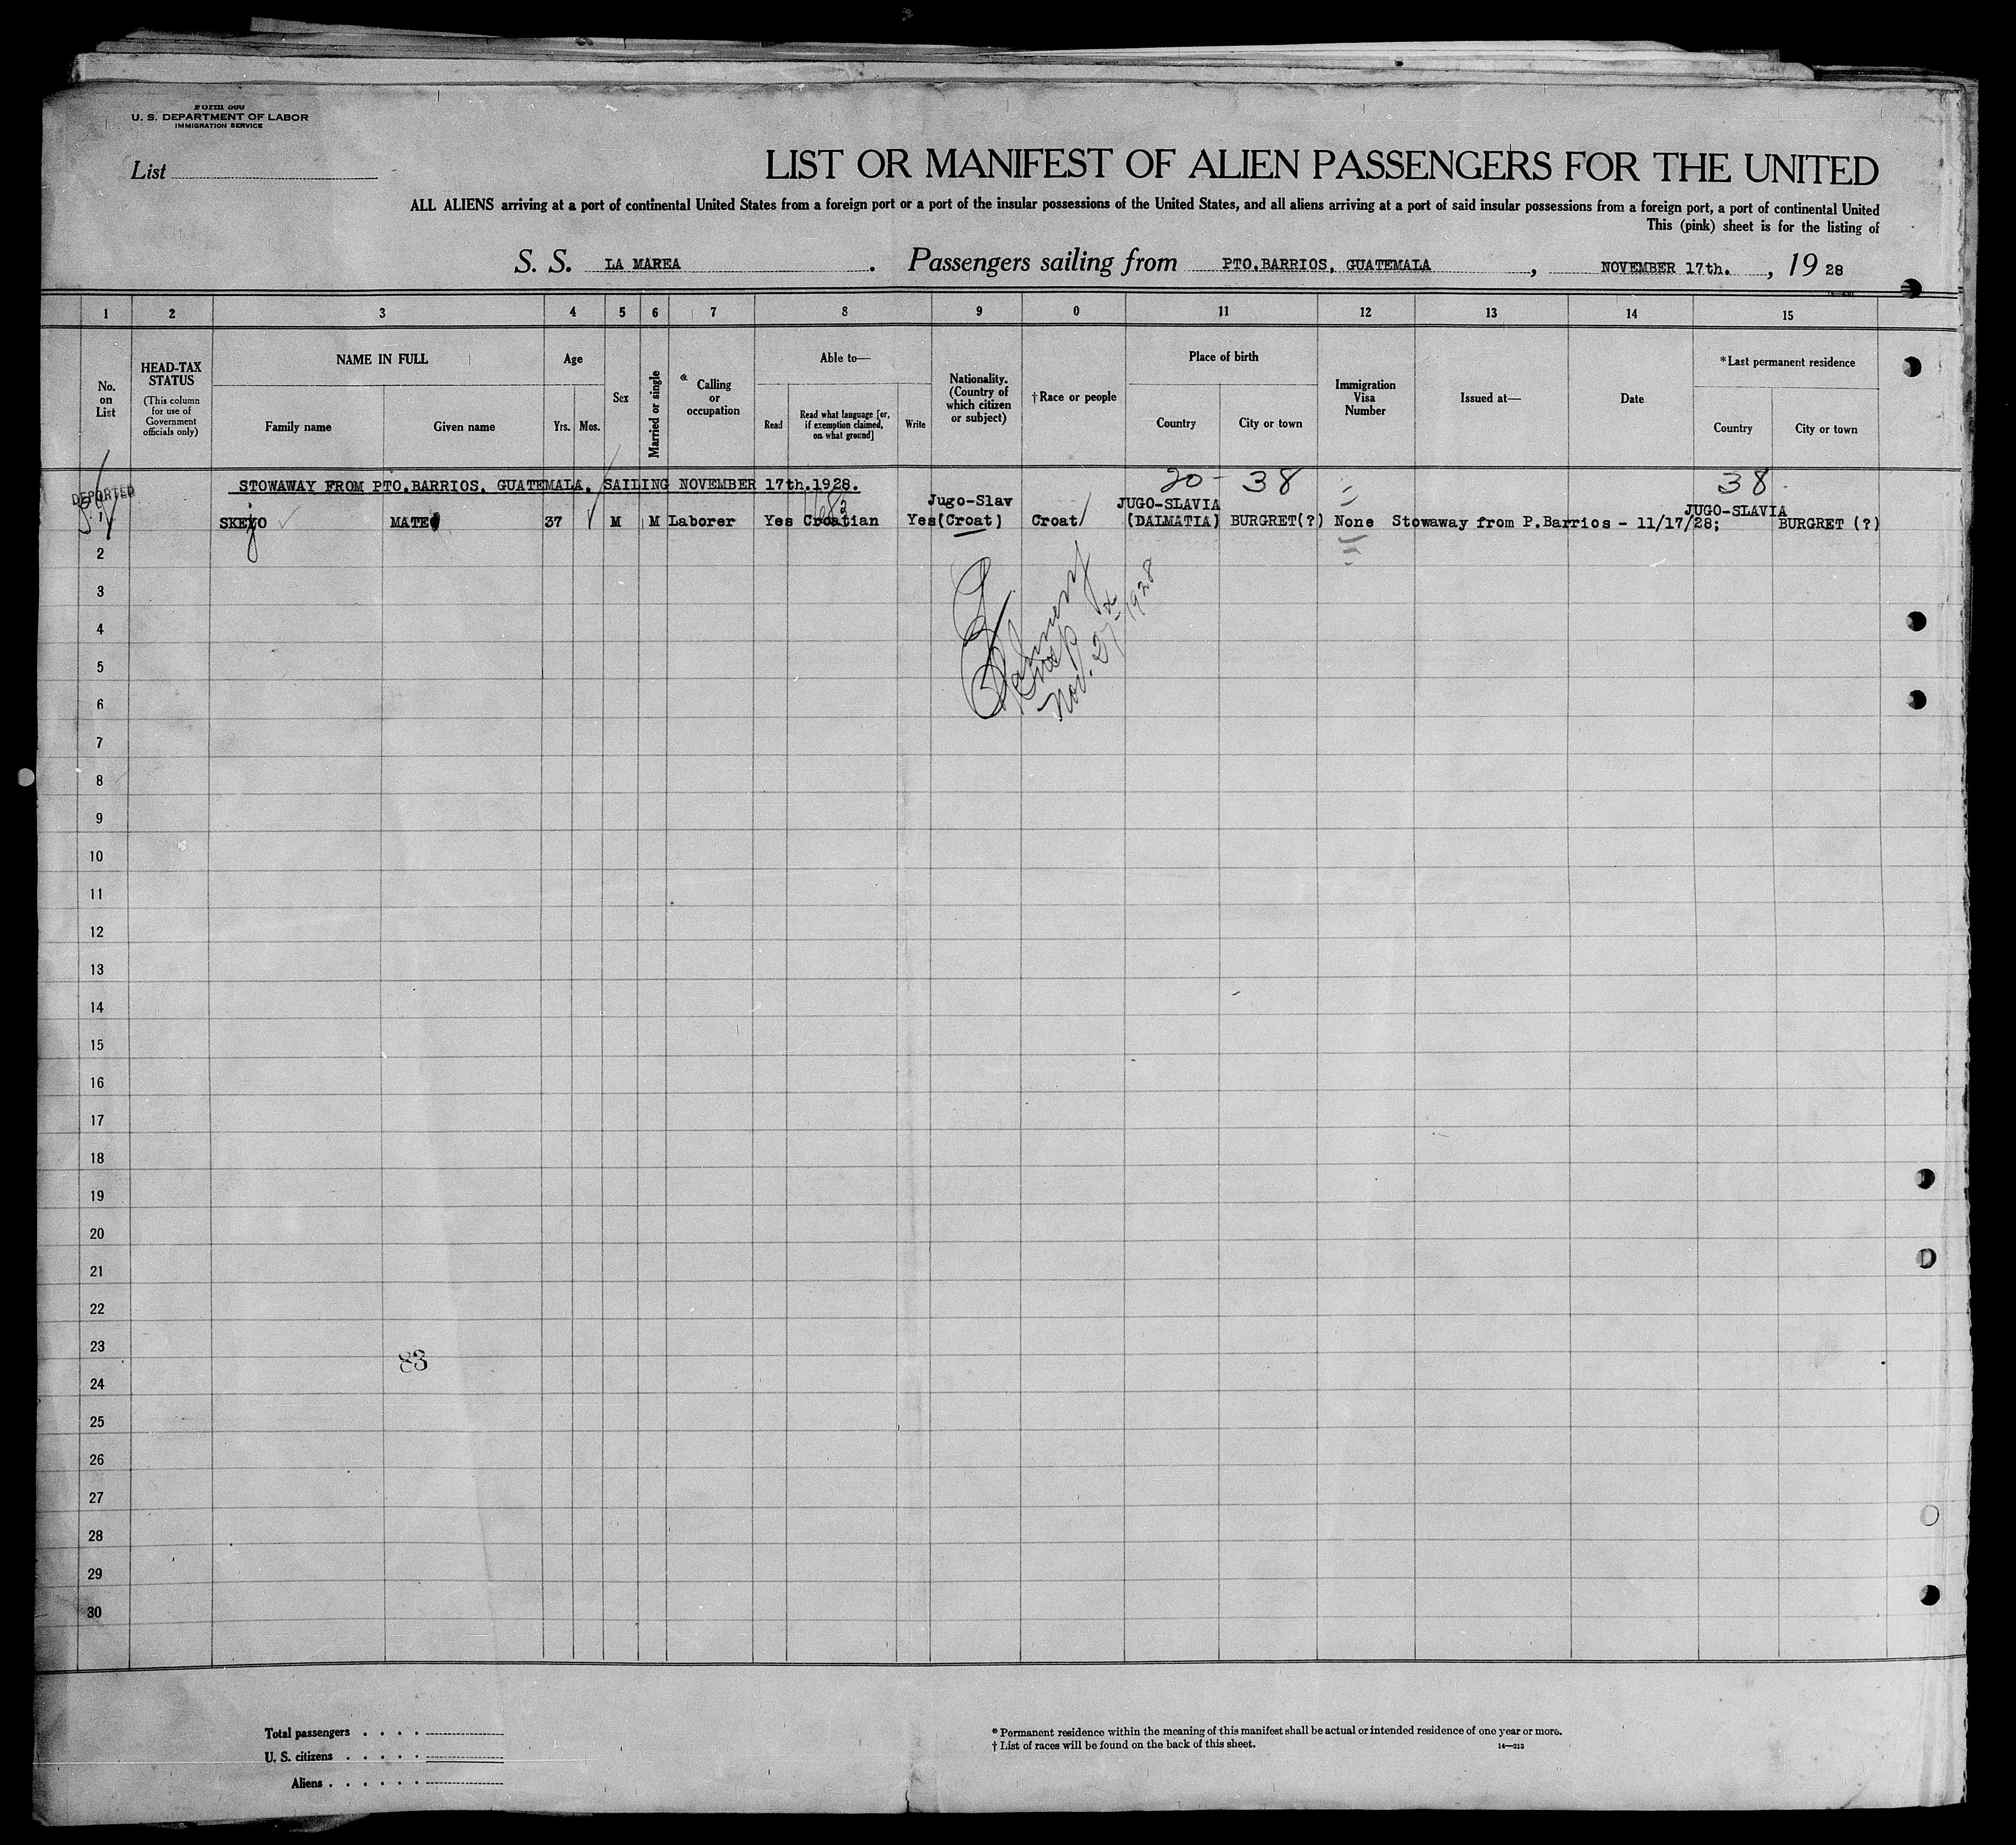 Form 500
U. S. DEPARTMENT OF LABOR
IMMIGRATION SERVICE
List
LIST OR MANIFEST OF ALIEN PASSENGERS FOR THE UNITED
ALL ALIENS arriving at a port of continental United States from a foreign port or a port of the insular possessions of the United States, and all aliens arriving at a port of said insular possessions from a foreign port, a port of continental United
This (pink) sheet is for the listing of
S. S. LA MAREA . Passengers sailing from PTO.BARRIOS, GUATEMALA , NOVEMBER 17th. , 19 28
1 2 3 4 5 6 7 8 9 0 11 12 13 14 15
No. on List
HEAD-TAX STATUS
(This column for use of Government officials only)
NAME IN FULL
Family name
Given name
Age
Yrs.
Mos.
Sex
Married or single
Calling or occupation
Able to—
Read
Read what language [or, if exemption claimed, on what ground]
Write
Nationality. (Country of which citizen or subject)
†Race or people
Place of birth
Country
City or town
Immigration Visa Number
Issued at—
Date
*Last permanent residence
Country
City or town
STOWAWAY FROM PTO.BARRIOS, GUATEMALA, SAILING NOVEMBER 17th.1928.
20 - 38
38
DEPORTED
1 MATE 37 M M Laborer Yes Croatian Yes Jugo-Slav (Croat) Croat JUGO-SLAVIA (DALMATIA) BURGRET(?) None Stowaway from P.Barrios - 11/17/28; JUGO-SLAVIA BURGRET (?)
2
3
4
5
6
Nov. 27 1928
7
8
9
10
11
12
13
14
15
16
17
18
19
20
21
22
23
83
24
25
26
27
28
29
30
Total passengers . . . .
U. S. citizens . . . . .
Aliens . . . . . .
* Permanent residence within the meaning of this manifest shall be actual or intended residence of one year or more.
† List of races will be found on the back of this sheet.
14—213